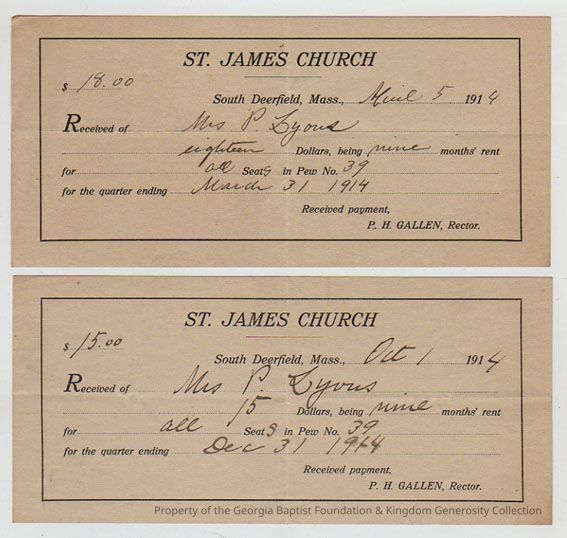 ST. JAMES CHURCH
$ 18.00
South Deerfield, Mass., April 5 1914
Received of Mrs P. Lyons
eighteen Dollars, being nine months' rent
for all Seats in Pew No. 39
for the quarter ending March 31 1914
Received payment,
P. H. GALLEN, Rector.
ST. JAMES CHURCH
$ 15.00
South Deerfield, Mass., Oct 1 1914
Received of Mrs P. Lyons
15 Dollars, being nine months' rent
for all Seats in Pew No. 39
for the quarter ending Dec 31 1914
Received payment,
P. H. GALLEN, Rector.
Property of the Georgia Baptist Foundation & Kingdom Generosity Collection